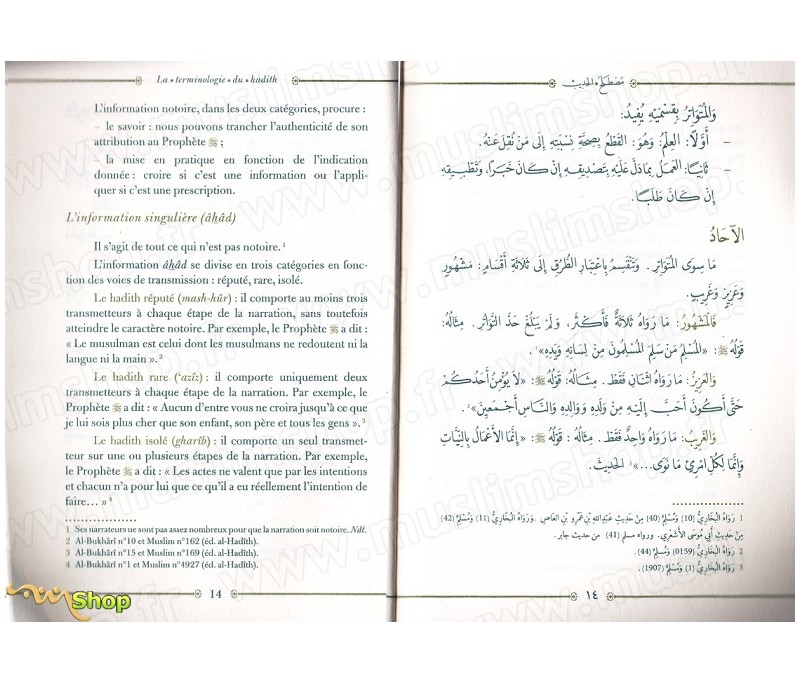 La • terminologie • du • hadith
L'information notoire, dans les deux catégories, procure :
– le savoir : nous pouvons trancher l'authenticité de son
attribution au Prophète ﷺ ;
– la mise en pratique en fonction de l'indication
donnée : croire si c'est une information ou l'appli-
quer si c'est une prescription.
L'information singulière (âhâd)
Il s'agit de tout ce qui n'est pas notoire.¹
L'information âhâd se divise en trois catégories en fonc-
tion des voies de transmission : réputé, rare, isolé.
Le hadith réputé (mash-hûr) : il comporte au moins trois
transmetteurs à chaque étape de la narration, sans toutefois
atteindre le caractère notoire. Par exemple, le Prophète ﷺ a dit :
« Le musulman est celui dont les musulmans ne redoutent ni la
langue ni la main ».²
Le hadith rare (‘azîz) : il comporte uniquement deux
transmetteurs à chaque étape de la narration. Par exemple, le
Prophète ﷺ a dit : « Aucun d'entre vous ne croira jusqu'à ce que
je lui sois plus cher que son enfant, son père et tous les gens ».³
Le hadith isolé (gharîb) : il comporte un seul transmet-
teur sur une ou plusieurs étapes de la narration. Par exemple,
le Prophète ﷺ a dit : « Les actes ne valent que par les intentions
et chacun n'a pour lui que ce qu'il a eu réellement l'intention de
faire… » ⁴
1 Ses narrateurs ne sont pas assez nombreux pour que la narration soit notoire. Ndt.
2 Al-Bukhârî n°10 et Muslim n°162 (éd. al-Hadîth).
3 Al-Bukhârî n°15 et Muslim n°169 (éd. al-Hadîth).
4 Al-Bukhârî n°1 et Muslim n°4927 (éd. al-Hadîth).
14
Shop
مُصْطَلَحُ الحَدِيثِ
وَالمُتَوَاتِرُ بِقِسْمَيْهِ يُفِيدُ:
– أَوَّلًا: العِلْمُ: وَهُوَ: القَطْعُ بِصِحَّةِ نِسْبَتِهِ إِلَى مَنْ نُقِلَ عَنْهُ.
– ثَانِيًا: العَمَلُ بِمَا دَلَّ عَلَيْهِ بِتَصْدِيقِهِ إِنْ كَانَ خَبَرًا، وَتَطْبِيقِهِ
إِنْ كَانَ طَلَبًا.
الآحَادُ
مَا سِوَى المُتَوَاتِرِ. وَتَنْقَسِمُ بِاعْتِبَارِ الطُّرُقِ إِلَى ثَلَاثَةِ أَقْسَامٍ: مَشْهُورٍ
وَعَزِيزٍ وَغَرِيبٍ.
فَالمَشْهُورُ: مَا رَوَاهُ ثَلَاثَةٌ فَأَكْثَرُ، وَلَمْ يَبْلُغْ حَدَّ التَّوَاتُرِ. مِثَالُهُ:
قَوْلُهُ ﷺ: «المُسْلِمُ مَنْ سَلِمَ المُسْلِمُونَ مِنْ لِسَانِهِ وَيَدِهِ»¹.
وَالعَزِيزُ: مَا رَوَاهُ اثْنَانِ فَقَطْ. مِثَالُهُ: قَوْلُهُ ﷺ: «لَا يُؤْمِنُ أَحَدُكُمْ
حَتَّى أَكُونَ أَحَبَّ إِلَيْهِ مِنْ وَلَدِهِ وَوَالِدِهِ وَالنَّاسِ أَجْمَعِينَ»².
وَالغَرِيبُ: مَا رَوَاهُ وَاحِدٌ فَقَطْ. مِثَالُهُ: قَوْلُهُ ﷺ: «إِنَّمَا الأَعْمَالُ بِالنِّيَّاتِ
وَإِنَّمَا لِكُلِّ امْرِئٍ مَا نَوَى...»³ الحَدِيثَ.
1 رَوَاهُ البُخَارِيُّ (10) وَمُسْلِمٌ (40) مِنْ حَدِيثِ عَبْدِ اللهِ بْنِ عَمْرِو بْنِ العَاصِ. وَرَوَاهُ البُخَارِيُّ (11) وَمُسْلِمٌ (42)
مِنْ حَدِيثِ أَبِي مُوسَى الأَشْعَرِي. ورواه مسلم (41) من حديث جابر.
2 رَوَاهُ البُخَارِيُّ (0159) وَمُسْلِمٌ (44).
3 رَوَاهُ البُخَارِيُّ (1) وَمُسْلِمٌ (1907).
١٤
www.muslimshop.fr